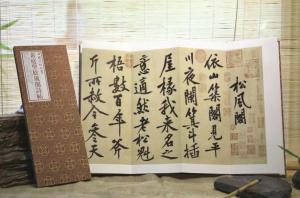 松風閣
依山築閣見平
川夜闌箕斗插
屋椽我來名之
意適然老松魁
梧數百年斧
斤所赦今參天
黃庭堅松風閣詩帖